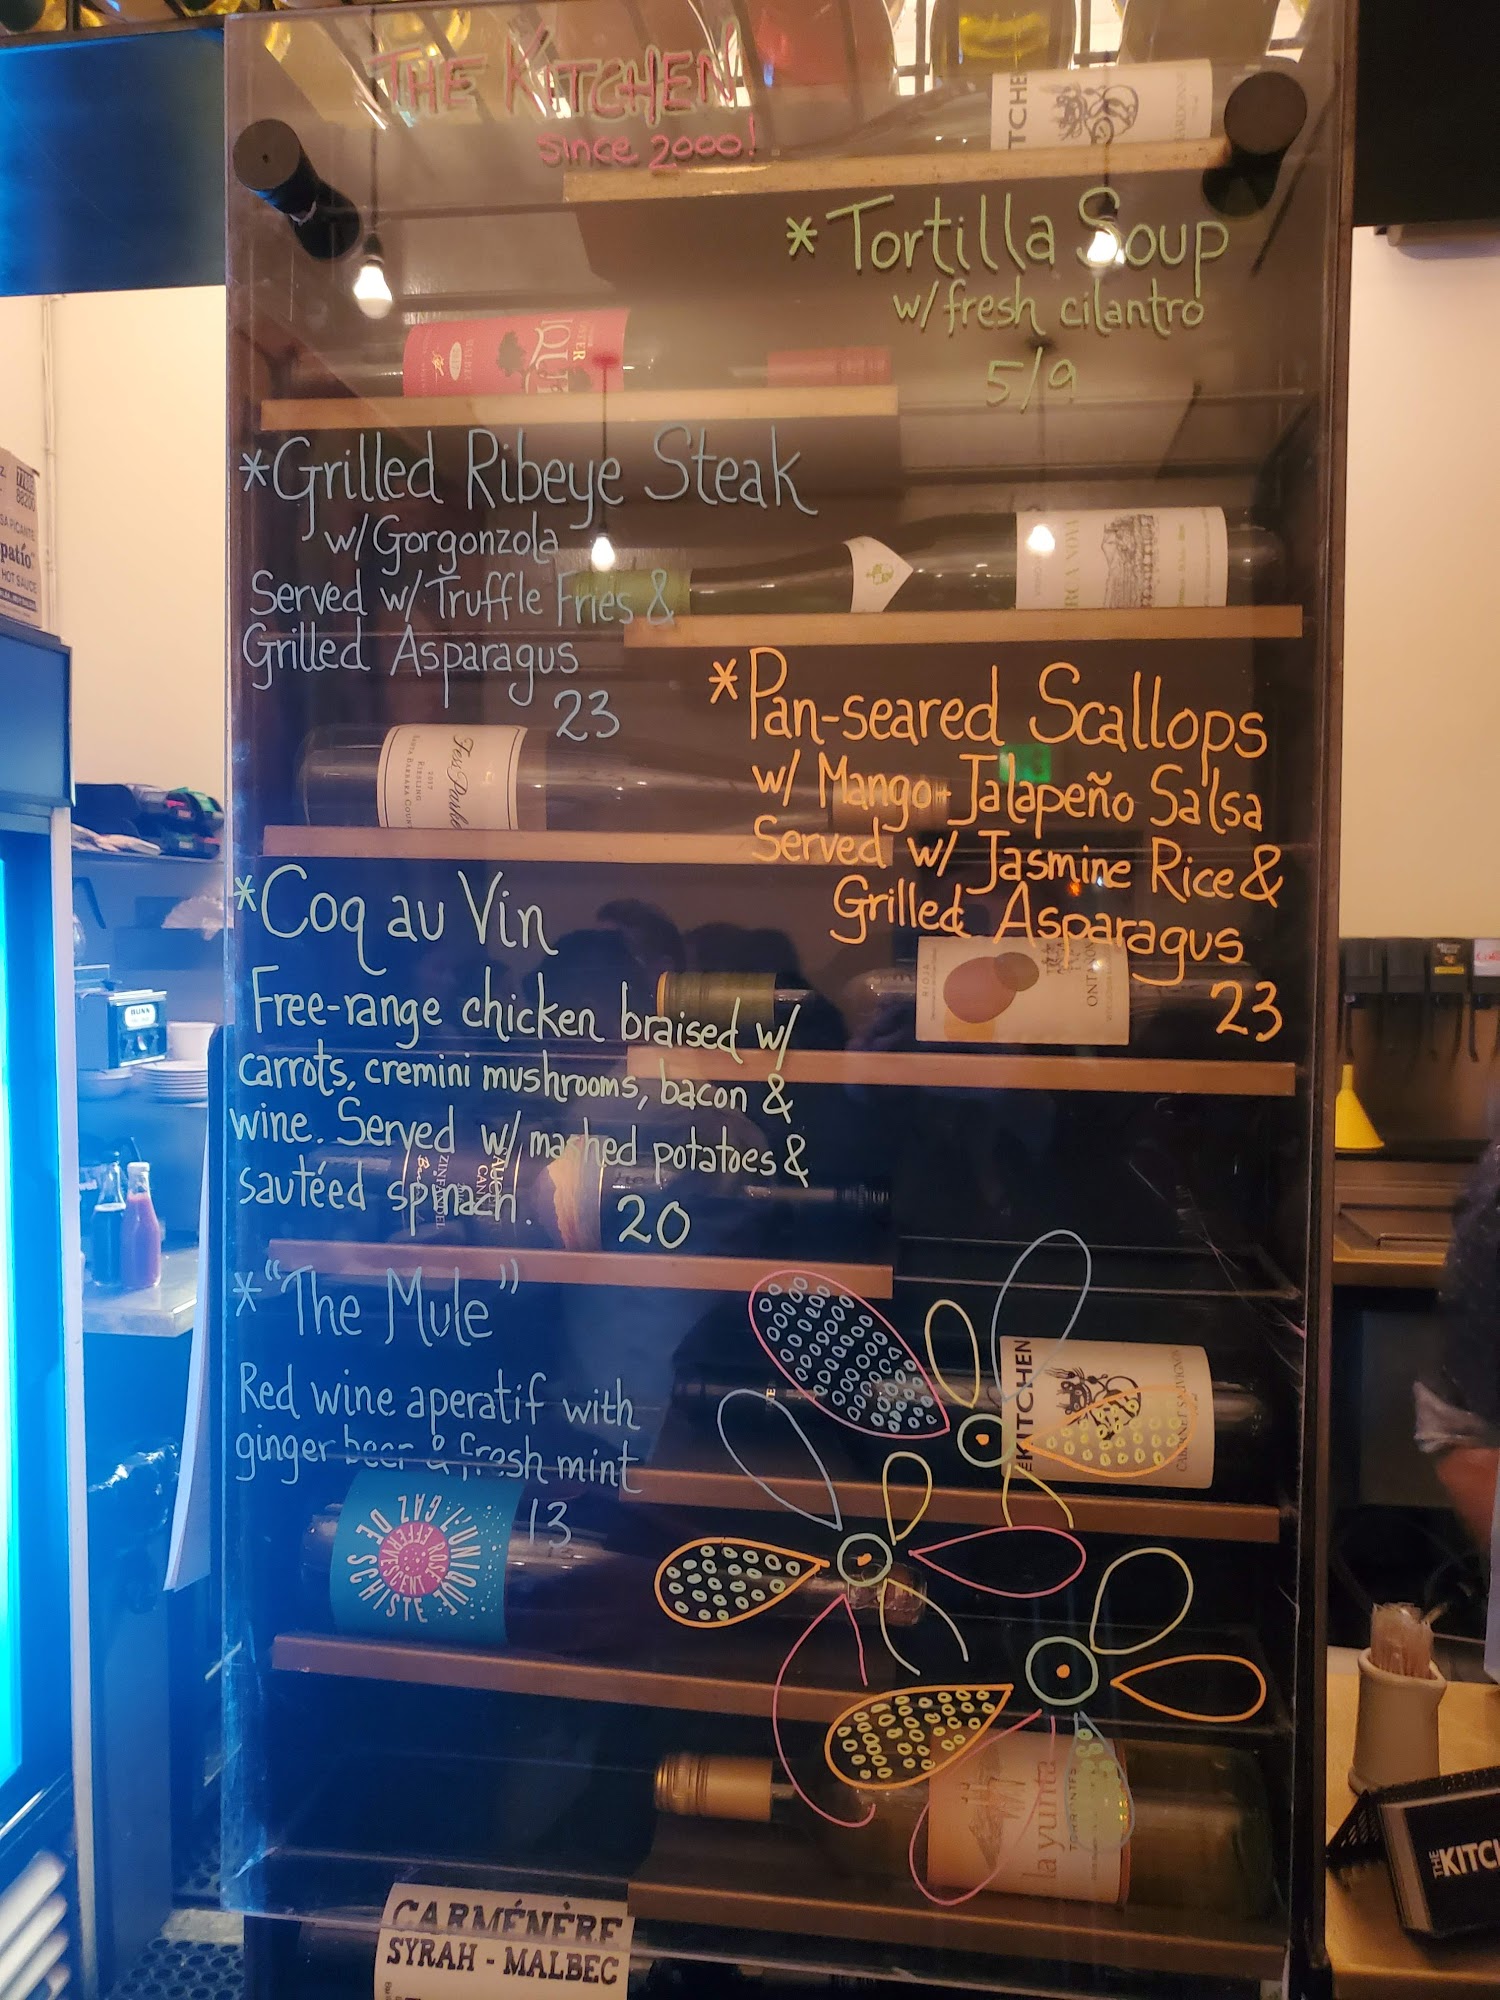 THE KITCHEN
since 2000!
* Tortilla Soup
w/ fresh cilantro
5/9
*Grilled Ribeye Steak
w/ Gorgonzola
Served w/ Truffle Fries &
Grilled Asparagus
23
*Pan-seared Scallops
w/ Mango-Jalapeño Salsa
Served w/ Jasmine Rice &
Grilled Asparagus
23
*Coq au Vin
Free-range chicken braised w/
carrots, cremini mushrooms, bacon &
wine. Served w/ mashed potatoes &
sautéed spinach.
20
*"The Mule"
Red wine aperatif with
ginger beer & fresh mint
13
TCHEN
2017
RIESLING
RIOJA
ZINFANDEL
THE KITCHEN
CABERNET SAUVIGNON
UNIQUE
GAZ DE SCHISTE
ROSÉ
EFFERVESCENT
la yunta
CARMÉNÈRE
SYRAH - MALBEC
BUNN
HOT SAUCE
THE KITC